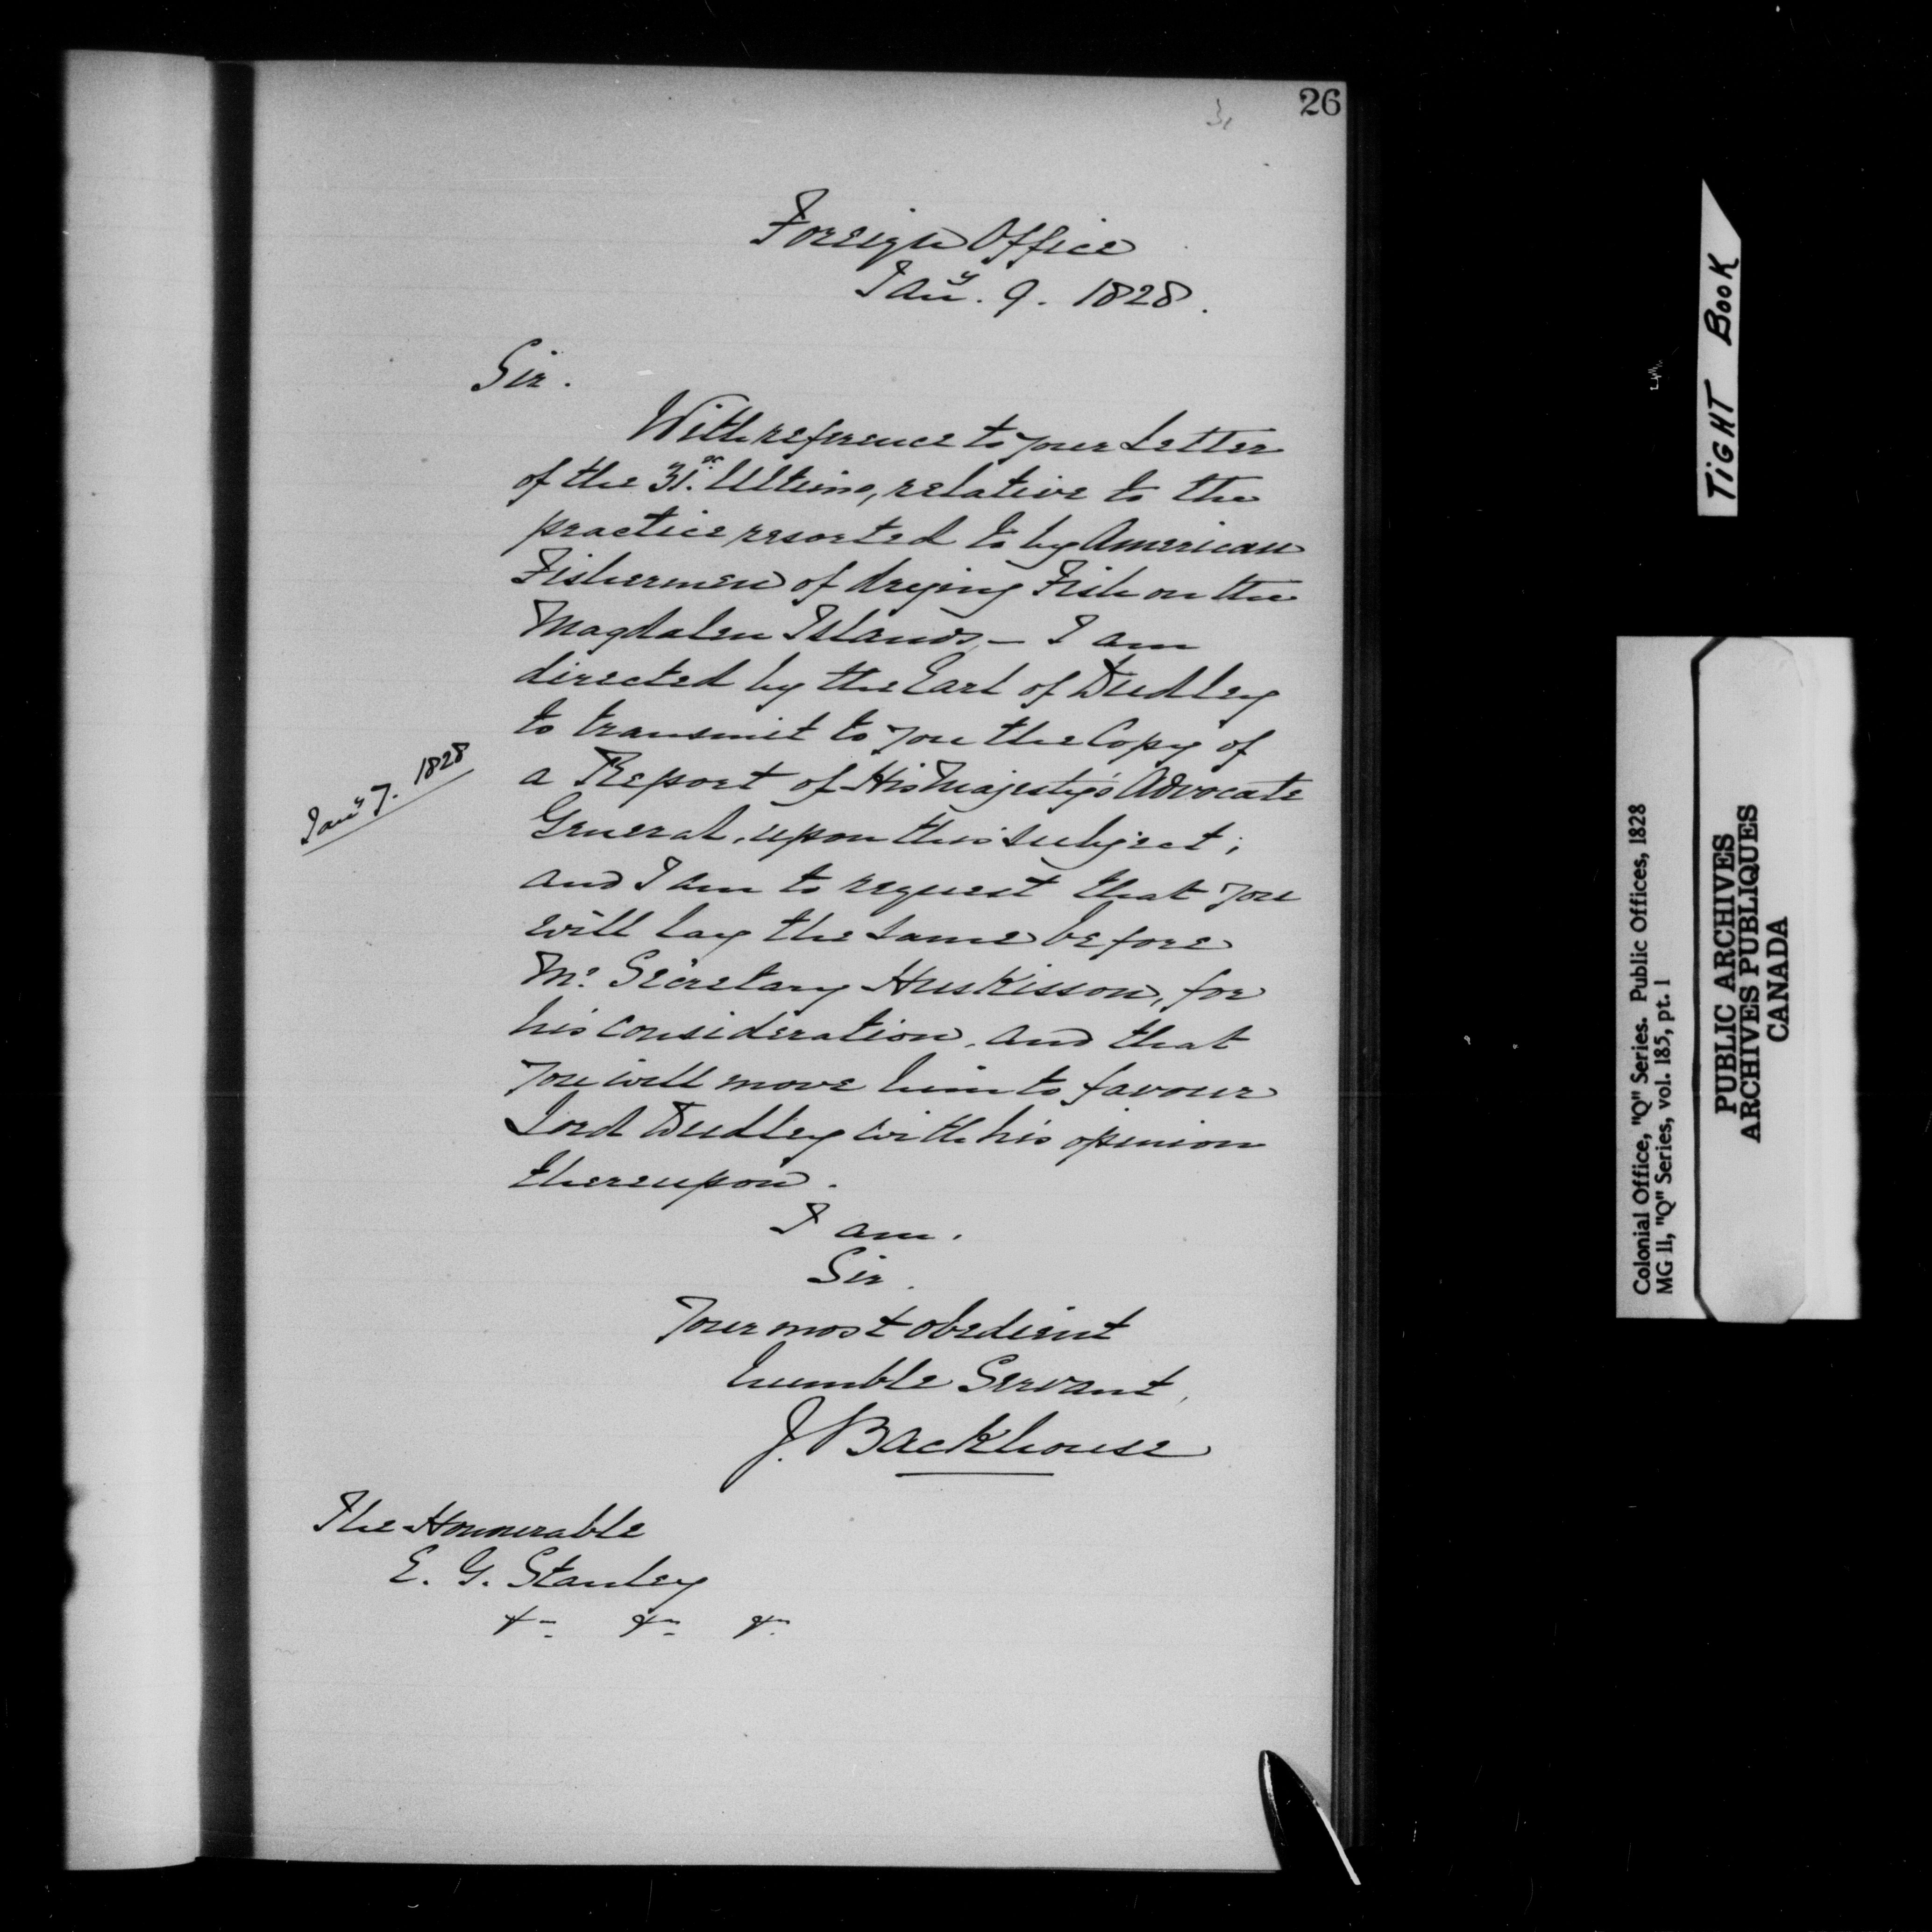 26
Foreign Office
Jany. 9. 1828.
Sir.
With reference to your Letter
of the 31st. Ultimo, relative to the
practice resorted to by American
Fishermen of drying Fish on the
Magdalen Islands,— I am
directed by the Earl of Dudley
to transmit to you the Copy of
Jany 7. 1828
a Report of His Majesty's Advocate
General, upon this subject;
and I am to request that you
will lay the same before
Mr. Secretary Huskisson, for
his consideration, and that
you will move him to favour
Lord Dudley with his opinion
thereupon.
I am.
Sir.
Your most obedient
humble Servant,
J. Backhouse
The Honourable
E. G. Stanley
&c. &c. &c.
TIGHT BOOK
Colonial Office, "Q" Series. Public Offices, 1828
MG 11, "Q" Series, vol. 185, pt. 1
PUBLIC ARCHIVES
ARCHIVES PUBLIQUES
CANADA